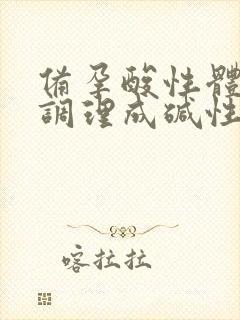 備孕酸性體
調理成碱性
喀拉拉